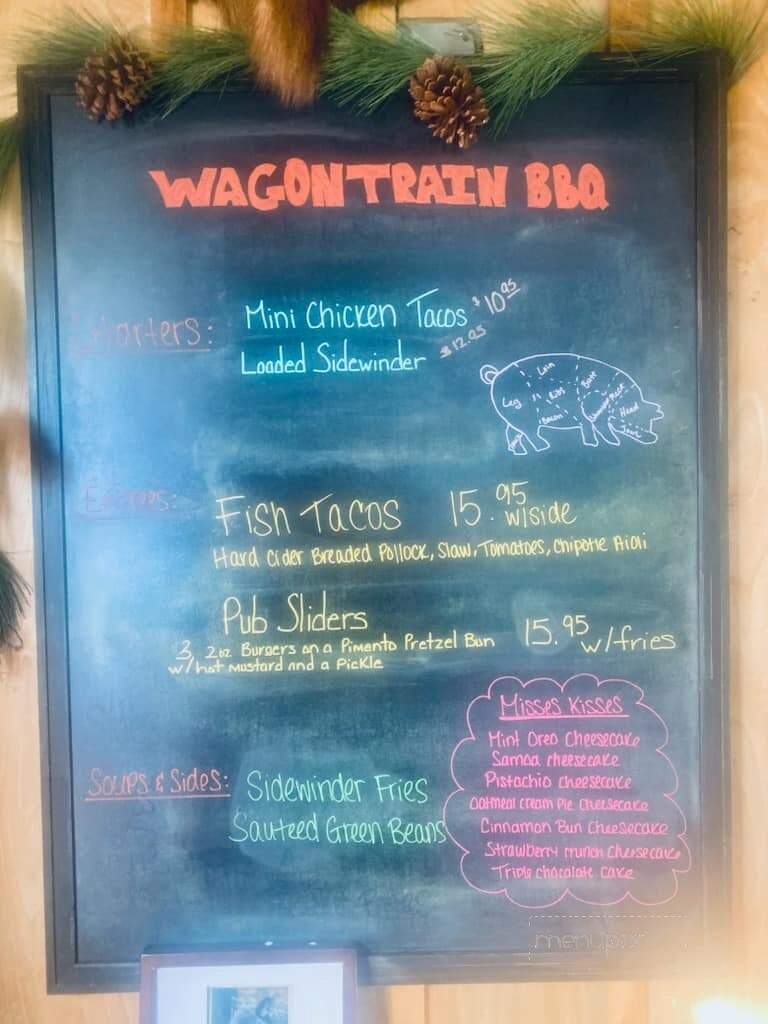 WAGONTRAIN BBQ
Starters:
Mini Chicken Tacos $10.95
Loaded Sidewinder $12.95
Loin
Leg
Ribs
Butt
Bacon
Head
Jowl
Entrees:
Fish Tacos 15.95 w/side
Hard Cider Breaded Pollock, Slaw, Tomatoes, Chipotle Aioli
Pub Sliders 15.95 w/fries
3 2oz Burgers on a Pimento Pretzel Bun
w/hot mustard and a Pickle
Soups & Sides:
Sidewinder Fries
Sauteed Green Beans
Misses Kisses
Mint Oreo Cheesecake
Samoa cheesecake
Pistachio cheesecake
Oatmeal cream Pie cheesecake
Cinnamon Bun Cheesecake
Strawberry crunch cheesecake
Triple chocolate cake